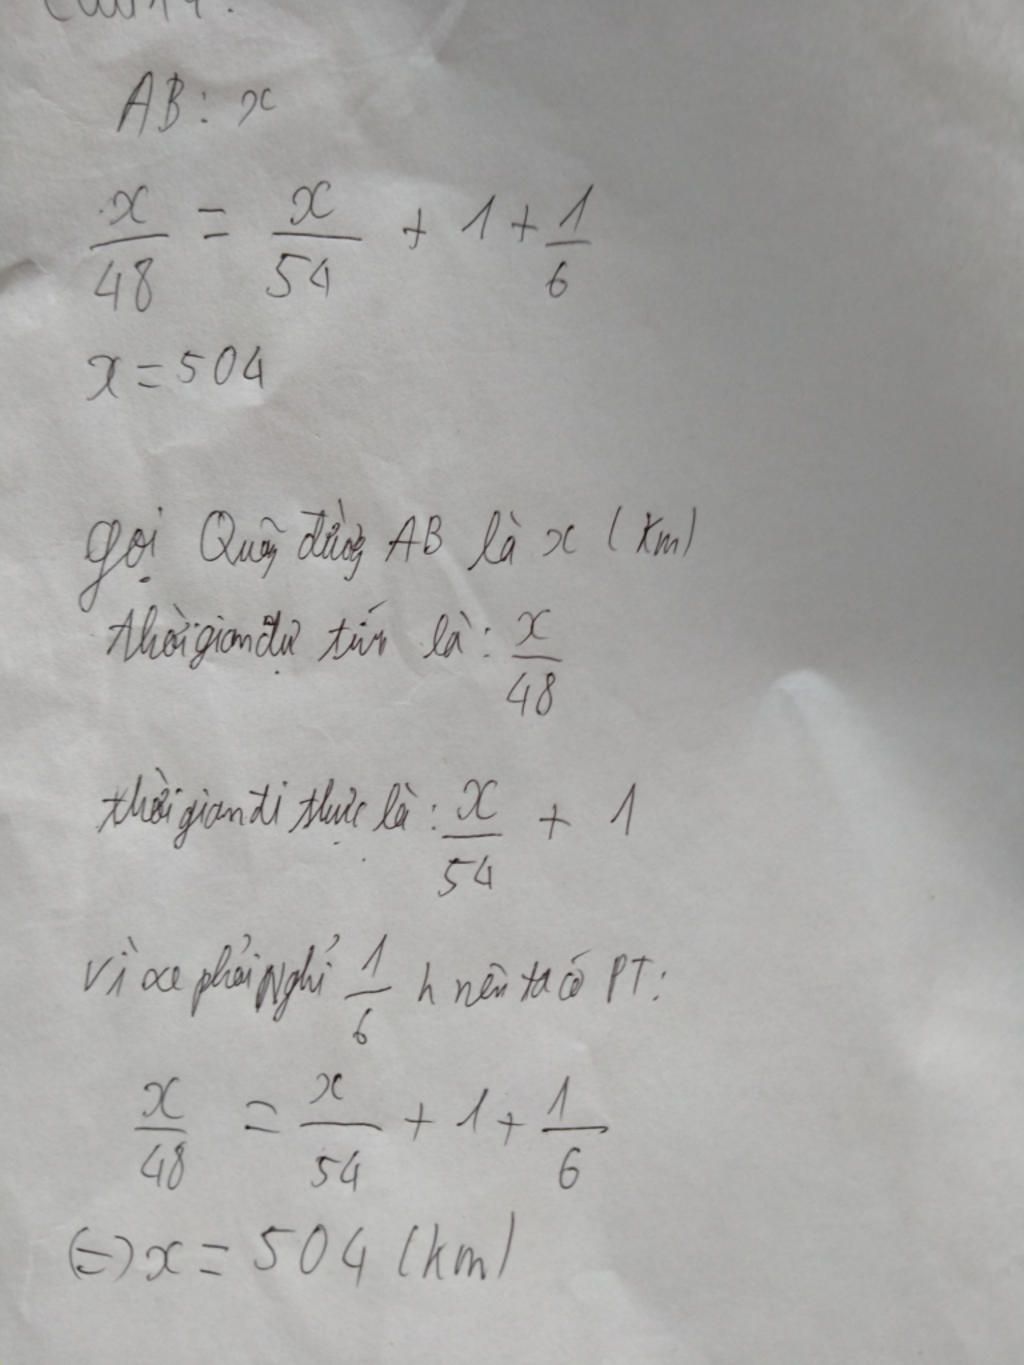 AB: x
x/48 = x/54 + 1 + 1/6
x = 504
gọi Quãng đường AB là x (km)
thời gian dự tính là: x/48
thời gian đi thực là: x/54 + 1
vì xe phải nghỉ 1/6 h nên ta có PT:
x/48 = x/54 + 1 + 1/6
(=) x = 504 (km)